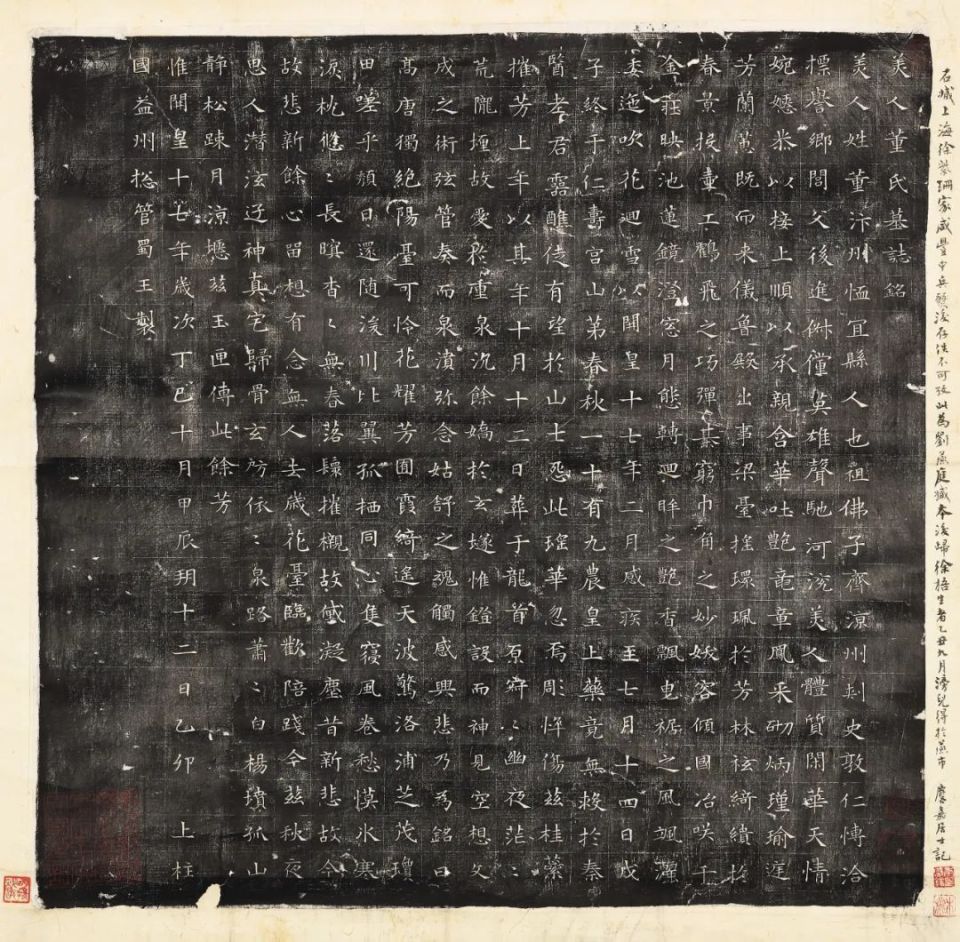 石城上海徐紫珊家咸豐中兵燹後存佚不可攷此為劉燕庭藏本後歸徐梧生者乙丑九月滂兒得於燕市 摩嘉居士記
美人董氏墓誌銘
美人姓董汴州恤宜縣人也祖佛子齊涼州刺史敦仁博洽
標譽鄉閭父後進俶儻英雄聲馳河浣美人體質閑華天情
婉嫕恭以接上順以承親含華吐艷竜章鳳采砌炳瑾瑜庭
芳蘭蕙既而來儀魯殿出事梁臺搖環珮於芳林袨綺繢於
春景投壺工鶴飛之巧彈棊窮巾角之妙妖容傾國冶咲千
金莊映池蓮鏡澄窓月態轉迴眸之艷香飄曳裾之風颯灑
委迤吹花迴雪以開皇十七年二月感疾至七月十四日戊
子終于仁壽宮山第春秋一十有九農皇上藥竟無救於秦
醫老君靈醮徒有望於山士怨此瑤華忽焉彫悴傷茲桂蘂
摧芳上年以其年十月十二日葬于龍首原寂〻幽夜茫〻
荒隴埋故愛於重泉沉餘嬌於玄㙽惟鐙設而神見空想文
成之術弦管奏而泉濆弥念姑舒之魂觸感興悲乃為銘曰
高唐獨絕陽臺可怜花耀芳囿霞綺遙天波驚洛浦芝茂瓊
田嗟乎頹日還隨浚川比翼孤栖同心隻寢風卷愁幙冰寒
淚枕悠〻長暝杳〻無春落鬟摧櫬故黛凝塵昔新悲故今
故悲新餘心留想有念無人去歲花臺臨歡陪踐今茲秋夜
思人潛泫迎神真宅歸骨玄房依〻泉路蕭〻白楊墳孤山
静松踈月涼瘞茲玉匣傳此餘芳
惟開皇十七年歲次丁巳十月甲辰朔十二日乙卯上柱
國益州揔管蜀王製